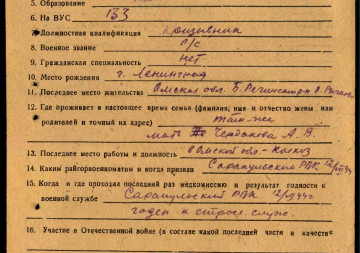 5. Образование
6. На ВУС 133
7. Должностная квалификация призывник
8. Военное звание р/с
9. Гражданская специальность нет
10. Место рождения г. Ленинград
11. Последнее место жительства Омская обл. Б.
12. Где проживает в настоящее время семья (фамилия, имя и отчество жены или
родителей и точный их адрес) там-же
мать Чердакова А. В.
13. Последнее место работы и должность Омская обл.- Колхоз
14. Каким райгорвоенкоматом и когда призван Сарапульский РВК 12/VII 44 г
15. Когда и где проходил последний раз медкомиссию и результат годности к
военной службе Сарапульский РВК 12/VII 44 г
годен к строев. служ.
16. Участие в Отечественной войне (в составе какой последней части в качестве